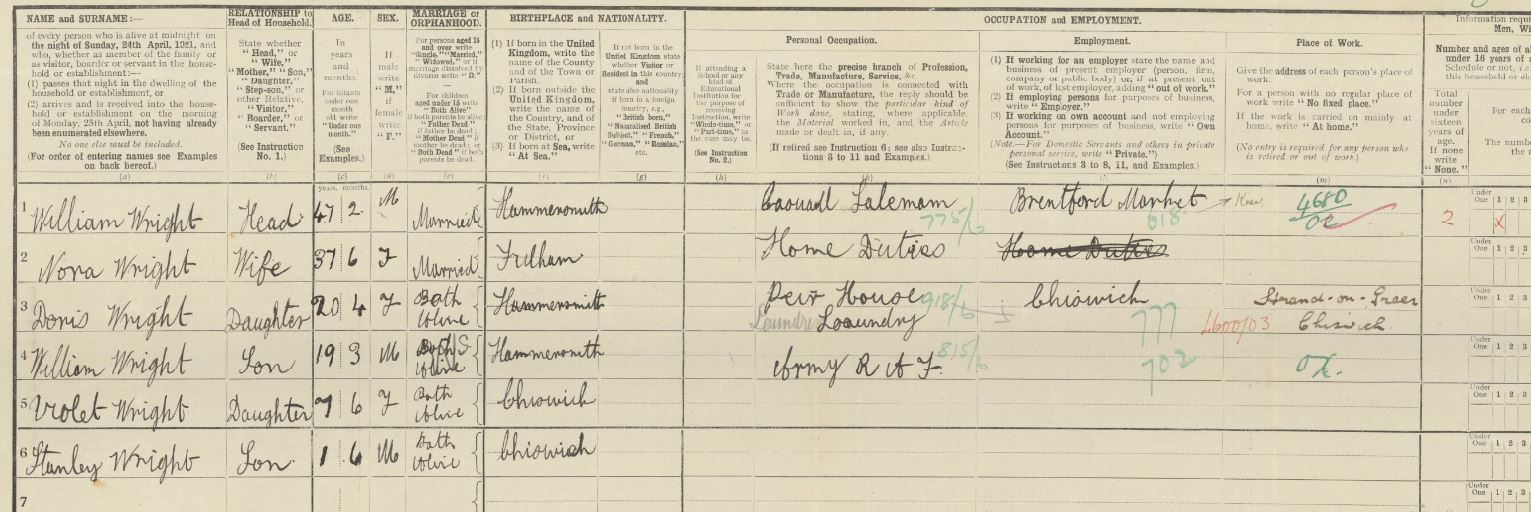 NAME AND SURNAME:—
of every person who is alive at midnight on
the night of Sunday, 24th April, 1921, and
who, whether as member of the family or
as visitor, boarder or servant in the house-
hold or establishment:—
(1) passes that night in the dwelling of
the household or establishment, or
(2) arrives and is received into the house-
hold or establishment on the morning
of Monday, 25th April, not having already
been enumerated elsewhere.
No one else must be included.
(For order of entering names see Examples
on back hereof.)
(a)
RELATIONSHIP to
Head of Household.
State whether
"Head," or
"Wife,"
"Mother," "Son,"
"Daughter,"
"Step-son," or
other Relative,
"Visitor,"
"Boarder," or
"Servant."
(See Instruction
No. 1.)
(b)
AGE.
In
years
and
months.
For infants
under one
month old
write
"Under one
month."
(See
Examples.)
(c)
SEX.
If
male
write
"M,"
if
female
write
"F."
(d)
MARRIAGE or
ORPHANHOOD.
For persons aged 15
and over write
"Single," "Married,"
"Widowed," or if
marriage dissolved by
divorce write "D."
For children
aged under 15 write
"Both Alive"
if both parents be alive
"Father Dead"
if father be dead;
"Mother Dead" if
mother be dead; or
"Both Dead" if both
parents be dead.
(e)
BIRTHPLACE and NATIONALITY.
(1) If born in the United
Kingdom, write the
name of the County
and of the Town or
Parish.
(2) If born outside the
United Kingdom,
write the name of
the Country, and of
the State, Province
or District, or
(3) If born at Sea, write
"At Sea."
(f)
If not born in the
United Kingdom state
whether Visitor or
Resident in this country,
and
state also nationality
if born in a foreign
country, e.g.,
"British born,"
"Naturalised British
Subject," "French,"
"German," "Russian,"
etc.
(g)
If attending a
School or any
kind of
Educational
Institution for
the purpose of
receiving
Instruction, write
"Whole-time," or
"Part-time," as
the case may be.
(See Instruction
No. 2.)
(h)
OCCUPATION AND EMPLOYMENT.
Personal Occupation.
State here the precise branch of Profession,
Trade, Manufacture, Service, &c.
Where the occupation is connected with
Trade or Manufacture, the reply should be
sufficient to show the particular kind of
Work done, stating, where applicable,
the Material worked in, and the Article
made or dealt in, if any.
If retired see Instruction 6; see also Instruc-
tions 3 to 11 and Examples.)
Employment.
(1) If working for an employer state the name and
business of present employer (person, firm,
company or public body) or, if at present out
of work, of last employer, adding "out of work."
(2) If employing persons for purposes of business,
write "Employer."
(3) If working on own account and not employing
persons for purposes of business, write "Own
Account."
(Note.—For Domestic Servants and others in private
personal service, write "Private.")
(See Instructions 3 to 8, 11, and Examples.)
Place of Work.
Give the address of each person's place of
work.
For a person with no regular place of
work write "No fixed place."
If the work is carried on mainly at
home, write "At home."
(No entry is required for any person who
is retired or out of work.)
(m)
Information requi
Men, Wi
Number and ages of a
under 16 years of
Schedule or not, i.e.
this household or els
Total
number
under
sixteen
years of
age.
If none
write
"None."
(n)
For each
The numbe
years. months.
1 William Wright Head 47 2 M Married Hammersmith Casual Salesman 775/6 Brentford Market 618 Kew 4680 oc 2 Under One 1 2 3 x
2 Nora Wright Wife 37 6 F Married Fulham Home Duties Home Duties Under One 1 2 3
3 Doris Wright Daughter 20 4 F Both Alive Hammersmith Peir House Laundry Loaundry 918/6 Chiswich 777 4600/03 Strand-on-Green Chiswich Under One 1 2 3
4 William Wright Son 19 3 M Both Alive S Hammersmith Army R A F. 815/6 702 Under One 1 2 3
5 Violet Wright Daughter 7 6 F Both Alive Chiswich Under One 1 2 3
6 Stanley Wright Son 1 6 M Both Alive Chiswich Under One 1 2 3
7 Under One 1 2 3